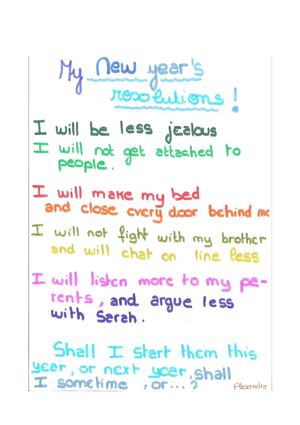 My New year's
resolutions !
I will be less jealous
I will not get attached to
people.
I will make my bed
and close every door behind me
I will not fight with my brother
and will chat on line less
I will listen more to my pa-
rents, and argue less
with Sarah.
Shall I start them this
year, or next year, shall
I sometime, or...?
Alexandre